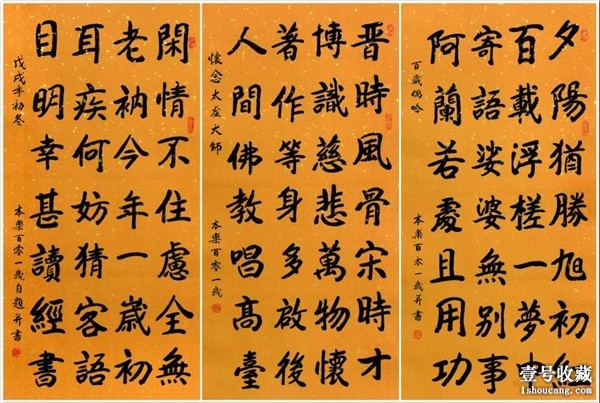 夕陽猶勝旭初
百載浮槎一夢中
寄語娑婆無別事
阿蘭若處且用功
百歲偶吟
本樂百零一歲并書
晋時風骨宋時才
博識慈悲萬物懷
著作等身多啟後
人間佛教唱高臺
懷念太虛大師
本樂百零一歲
閑情不住慮全無
老衲今年一歲初
耳疾何妨猜客語
目明幸甚讀經書
戊戌年初冬
本樂百零一歲自題并書
壹号收藏
1shoucang.com